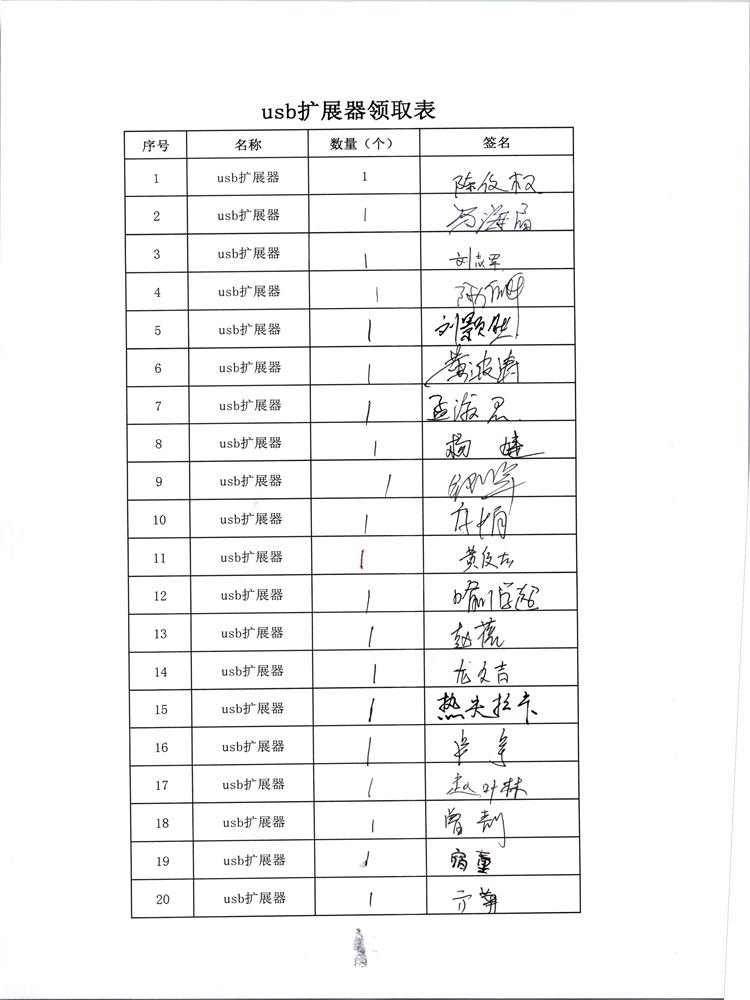 usb扩展器领取表
序号 名称 数量（个） 签名
1 usb扩展器 1 陈俊权
2 usb扩展器 1 冯海
3 usb扩展器 1 刘志军
4 usb扩展器 1
5 usb扩展器 1 刘颢
6 usb扩展器 1 黄波涛
7 usb扩展器 1 孟淑君
8 usb扩展器 1 杨婕
9 usb扩展器 1
10 usb扩展器 1
11 usb扩展器 1 黄俊
12 usb扩展器 1
13 usb扩展器 1 赵蕊
14 usb扩展器 1 龙文吉
15 usb扩展器 1 热夹拉卡
16 usb扩展器 1
17 usb扩展器 1 赵叶林
18 usb扩展器 1 曾
19 usb扩展器 1 董
20 usb扩展器 1